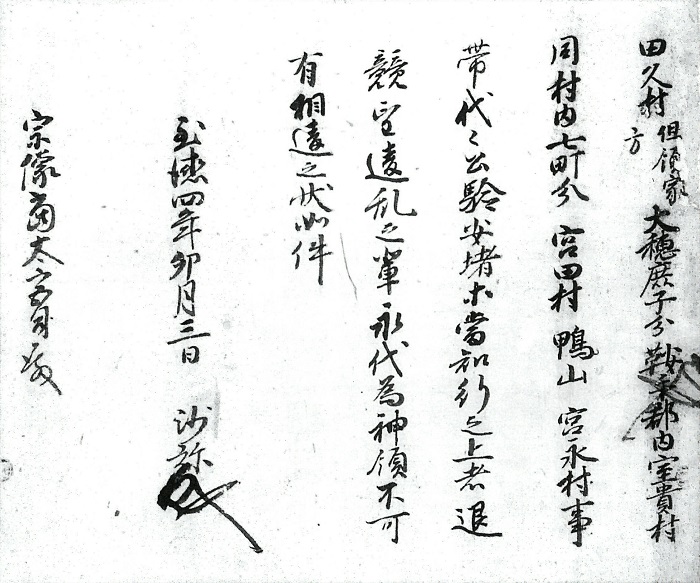 田久村但領家方 大穂庶子分 鞍手郡内室貴村
同村内七町分 宮田村 鴨山 宮永村事
帯代々公験安堵等当知行之上者退
競望違乱之輩永代為神領不可
有相違之状如件
至徳四年卯月三日 沙弥
宗像 大宮司殿